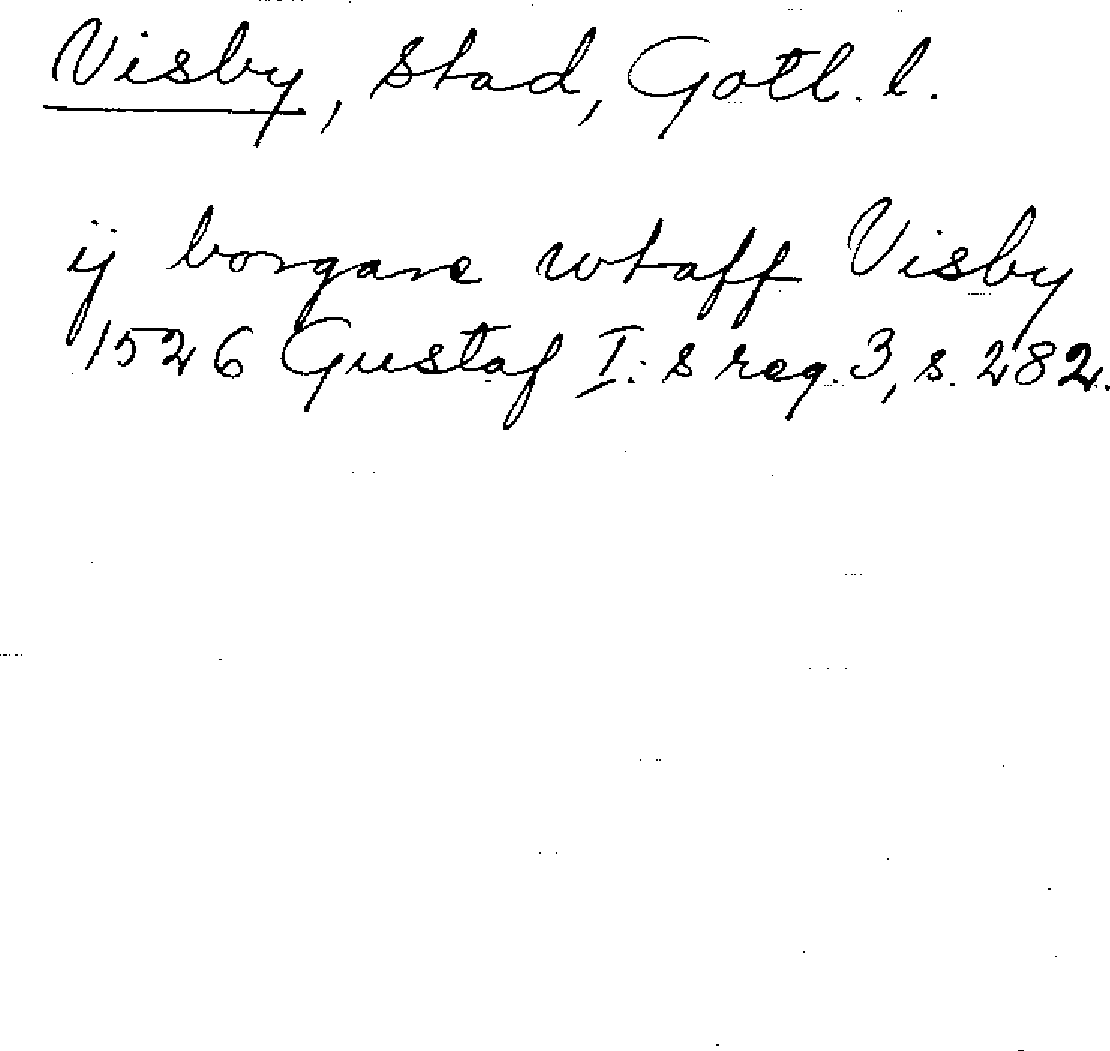 Visby, stad, Gotl. l.
ij borgare wtaff Visby
1526 Gustaf I:s reg. 3, s. 282.